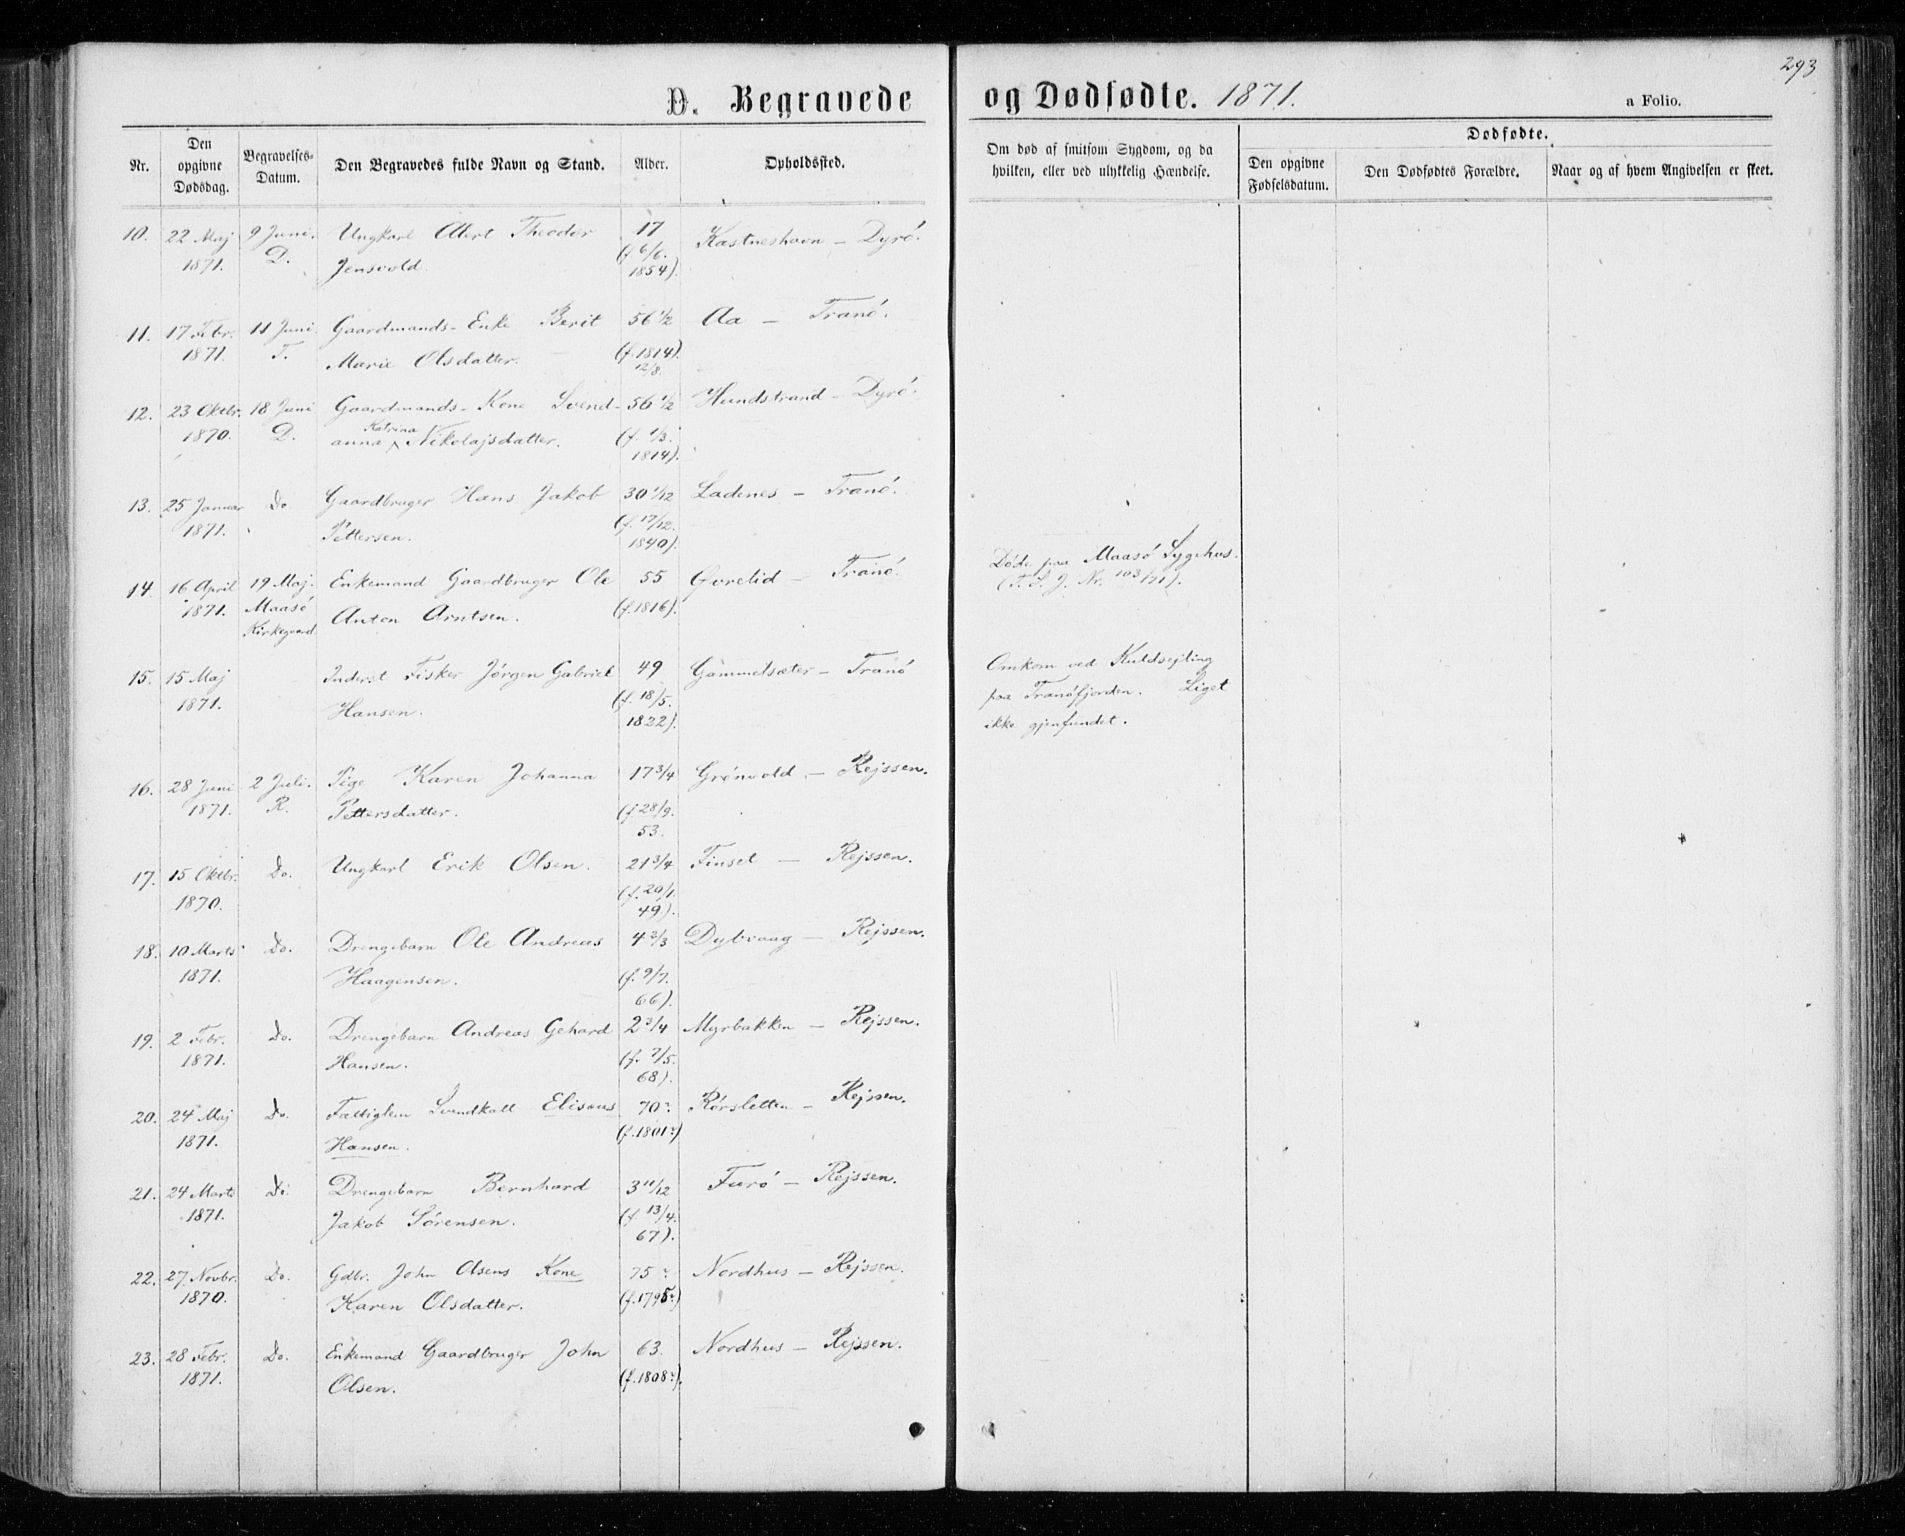 293
D. Begravede og Dødfødte. 1871.
a Folio.
Nr.
Den opgivne Dødsdag.
Begravelses-Datum.
Den Begravedes fulde Navn og Stand.
Alder.
Opholdssted.
Om død af smitsom Sygdom, og da hvilken, eller ved ulykkelig Hændelse.
Dødfødte.
Den opgivne Fødselsdatum.
Den Dødfødtes Forældre.
Naar og af hvem Angivelsen er skeet.
10. 22 Maj 9 Juni. Ungkarl Theodor 17 Kastneshavn – Dyrö.
1871. D. Jensvold. (f 6/6. 1854).
11. 17 Febr. 11 Juni. Gaardmands-Enke Berit 56 1/2 Aa – Tranö.
1871. T. Marie Olsdatter. (f. 1814). 12/8.
12. 23 Oktbr. 18 Juni Gaardmands-Kone Svend- 56 1/2 Hundstrand – Dyrö.
1870. D. anna Katrina Nikolajsdatter. (f. 1/3. 1814).
13. 25 Januar Do Gaardbruger Hans Jakob 30 1/12 Ladenes – Tranö.
1871. Pettersen. (f. 17/12. 1840).
14. 16 April 19 Maj. Enkemand Gaardbruger Ole 55 – Tranö. Döde paa Maasö Sygehus.
1871. Maasö Kirkegaard. Anton Arntsen. (f. 1816). (T. S. J. Nr. 103/71).
15. 15 Maj Inderst Fisker Jörgen Gabriel 49 Gammelsæter – Tranö Omkom ved Kuldsejling
1871. Hansen. (f. 18/5. 1822). paa Tranöfjorden. Liget
ikke gjenfundet.
16. 28 Juni 2 Juli. Pige Karen Johanna 17 3/4 Grönvold – Rejssen.
1871. R. Pettersdatter. (f 28/9. 53.
17. 15 Oktbr. Do. Ungkarl Erik Olsen. 21 3/4 Finset – Rejssen.
1870. (f. 20/1. 49).
18. 10 Marts Do. Drengebarn Ole Andreas 4 2/3 Dybvaag – Rejssen.
1871. Haagensen. (f. 9/7. 66).
19. 2 Febr. Do. Drengebarn Andreas Gehard 2 3/4 Myrbakken – Rejssen.
1871. Hansen. (f. 7/5. 68).
20. 24 Maj Do. Fattiglem Elisæus 70? Rörsletten – Rejssen.
1871. Hansen. (f. 1801?)
21. 24 Marts Do. Drengebarn Bernhard 3 11/12 Furö – Rejssen.
1871. Jakob Sörensen. (f 13/4. 67).
22. 27 Novbr. Do. Gdbr. John Olsens Kone 75? Nordhus – Rejssen.
1870. Karen Olsdatter. (f. 1795?)
23. 28 Febr. Do. Enkemand Gaardbruger John 63. Nordhus – Rejssen.
1871. Olsen. (f. 1808?).